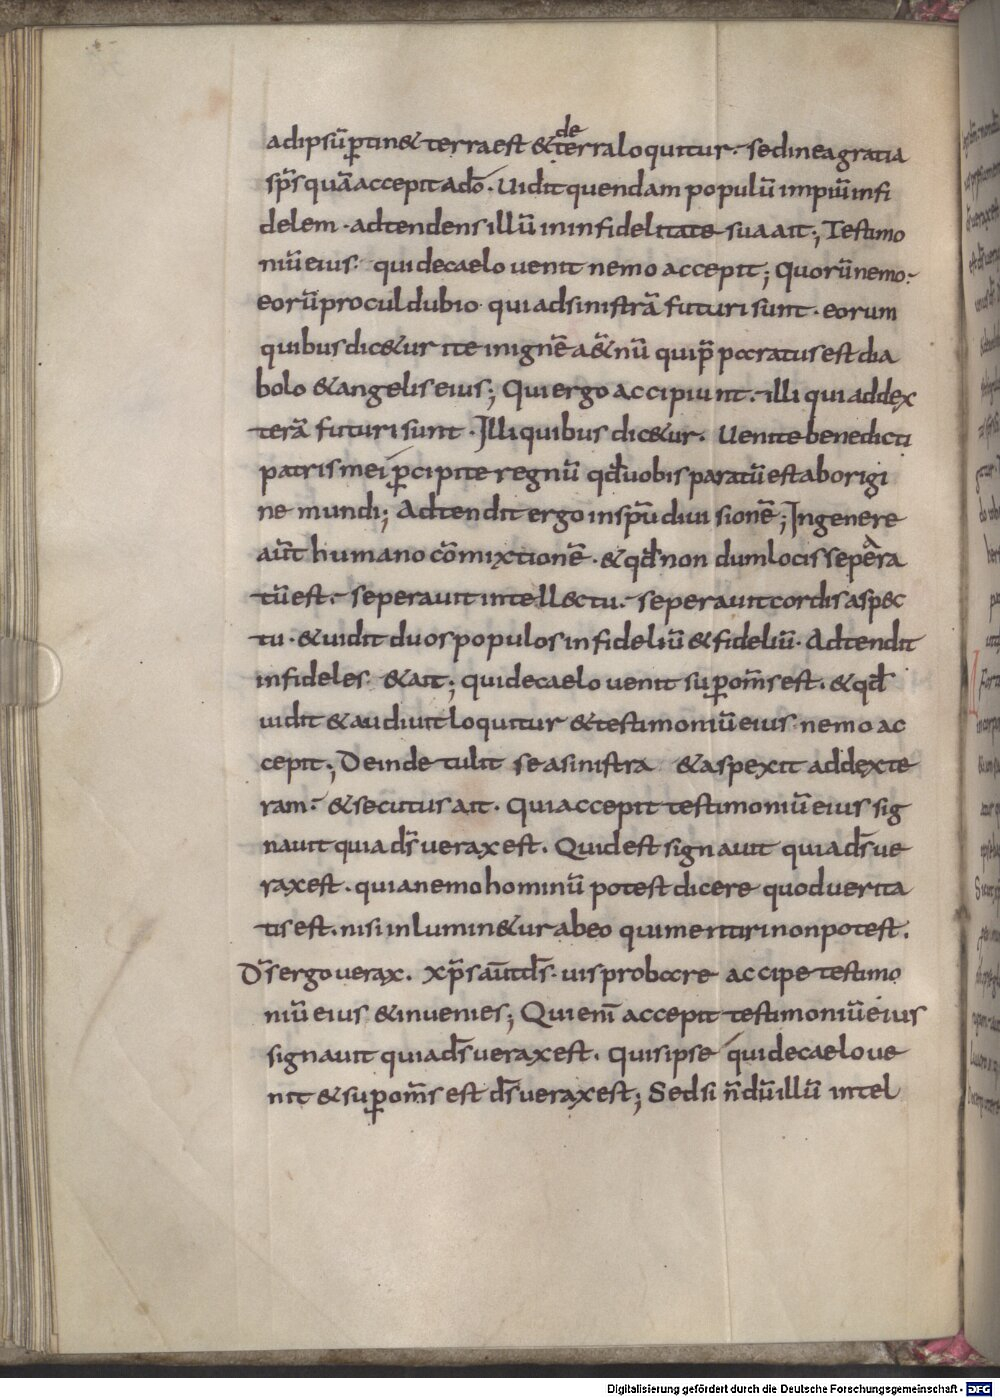 adipsū p̄tin& terra est & de terra loquitur· sed in ea gratia
sp̄s quā accepit a dō· Uidit quendam populū impiū infi
delem· adtendens illū in infidelitate sua ait; Testimo
niū eius qui de caelo uenit nemo accepit; Quorū nemo·
eorū procul dubio qui ad sinistrā futuri sunt· eorum
quibus dic&ur ite in ignē a&nū qui p̄paratus est dia
bolo & angelis eius; Qui ergo accipiunt· illi qui ad dex
terā futuri sunt· Illi quibus dic&ur· Uenite benedicti
patris mei p̄cipite regnū qd̄ uobis paratū est ab origi
ne mundi; Adtendit ergo in sp̄u diuisionē; In genere
aūt humano cōmixtionē· & qd̄ nondum locis sepera
tū est· seperauit intellectu· seperauit cordis aspec
tu· & uidit duos populos infideliū & fideliū· Adtendit
infideles & ait; qui de caelo uenit sup om̄s est· & qd̄
uidit & audiuit loquitur & testimoniū eius nemo ac
cepit; Deinde tulit se a sinistra & aspexit ad dexte
ram· & secutus ait· Qui accepit testimoniū eius sig
nauit quia d̄s uerax est· Quid est signauit quia d̄s ue
rax est· quia nemo hominū potest dicere quod uerita
tis est· nisi inlumin&ur ab eo qui mentiri non potest·
D̄s ergo uerax· xp̄s aūt d̄s· uis probare accipe testimo
niū eius & inuenies; Qui enī accepit testimoniū eius
signauit quia d̄s uerax est· Quis ipse qui de caelo ue
nit & sup om̄s est d̄s uerax est; Sed si n̄dū illū intel
Digitalisierung gefördert durch die Deutsche Forschungsgemeinschaft - DFG